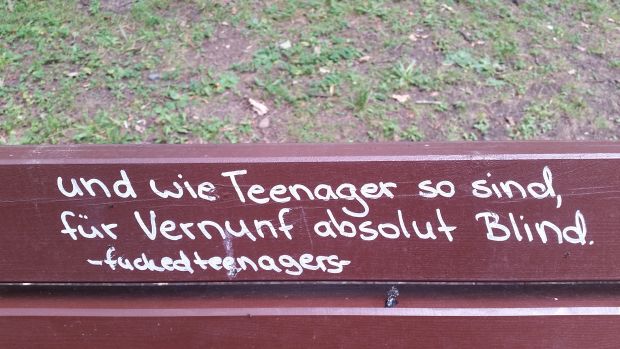 und wie Teenager so sind,
für Vernunf absolut Blind.
-fuckedteenagers-